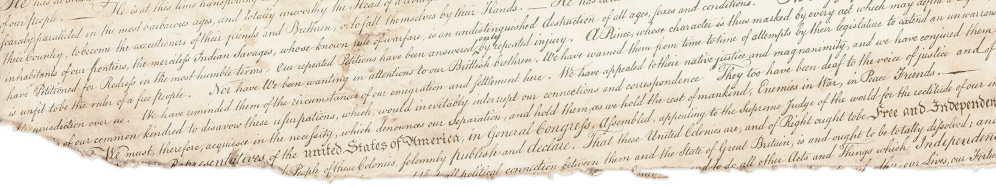 our people. — He is at this time transporting
scarcely paralleled in the most barbarous ages, and totally unworthy the Head of a
their Country, to become the executioners of their friends and Brethren, or to fall themselves by their Hands. — He has
inhabitants of our frontiers, the merciless Indian Savages, whose known rule of warfare, is an undistinguished destruction of all ages, sexes and conditions.
have Petitioned for Redress in the most humble terms : Our repeated Petitions have been answered only by repeated injury. A Prince, whose character is thus marked by every act which may define a
is unfit to be the ruler of a free people. Nor have We been wanting in attentions to our Brittish brethren. We have warned them from time to time of attempts by their legislature to extend an unwarran
jurisdiction over us. We have reminded them of the circumstances of our emigration and settlement here. We have appealed to their native justice and magnanimity, and we have conjured them
of our common kindred to disavow these usurpations, which, would inevitably interrupt our connections and correspondence They too have been deaf to the voice of justice and of
We must, therefore, acquiesce in the necessity, which denounces our Separation, and hold them, as we hold the rest of mankind, Enemies in War, in Peace Friends. —
Representatives of the united States of America, in General Congress, Assembled, appealing to the Supreme Judge of the world for the rectitude of our
People of these Colonies, solemnly publish and declare, That these United Colonies are, and of Right ought to be Free and Independen
all political connection between them and the State of Great Britain, is and ought to be totally dissolved; and
and to do all other Acts and Things which Independen
our Lives, our Fortu